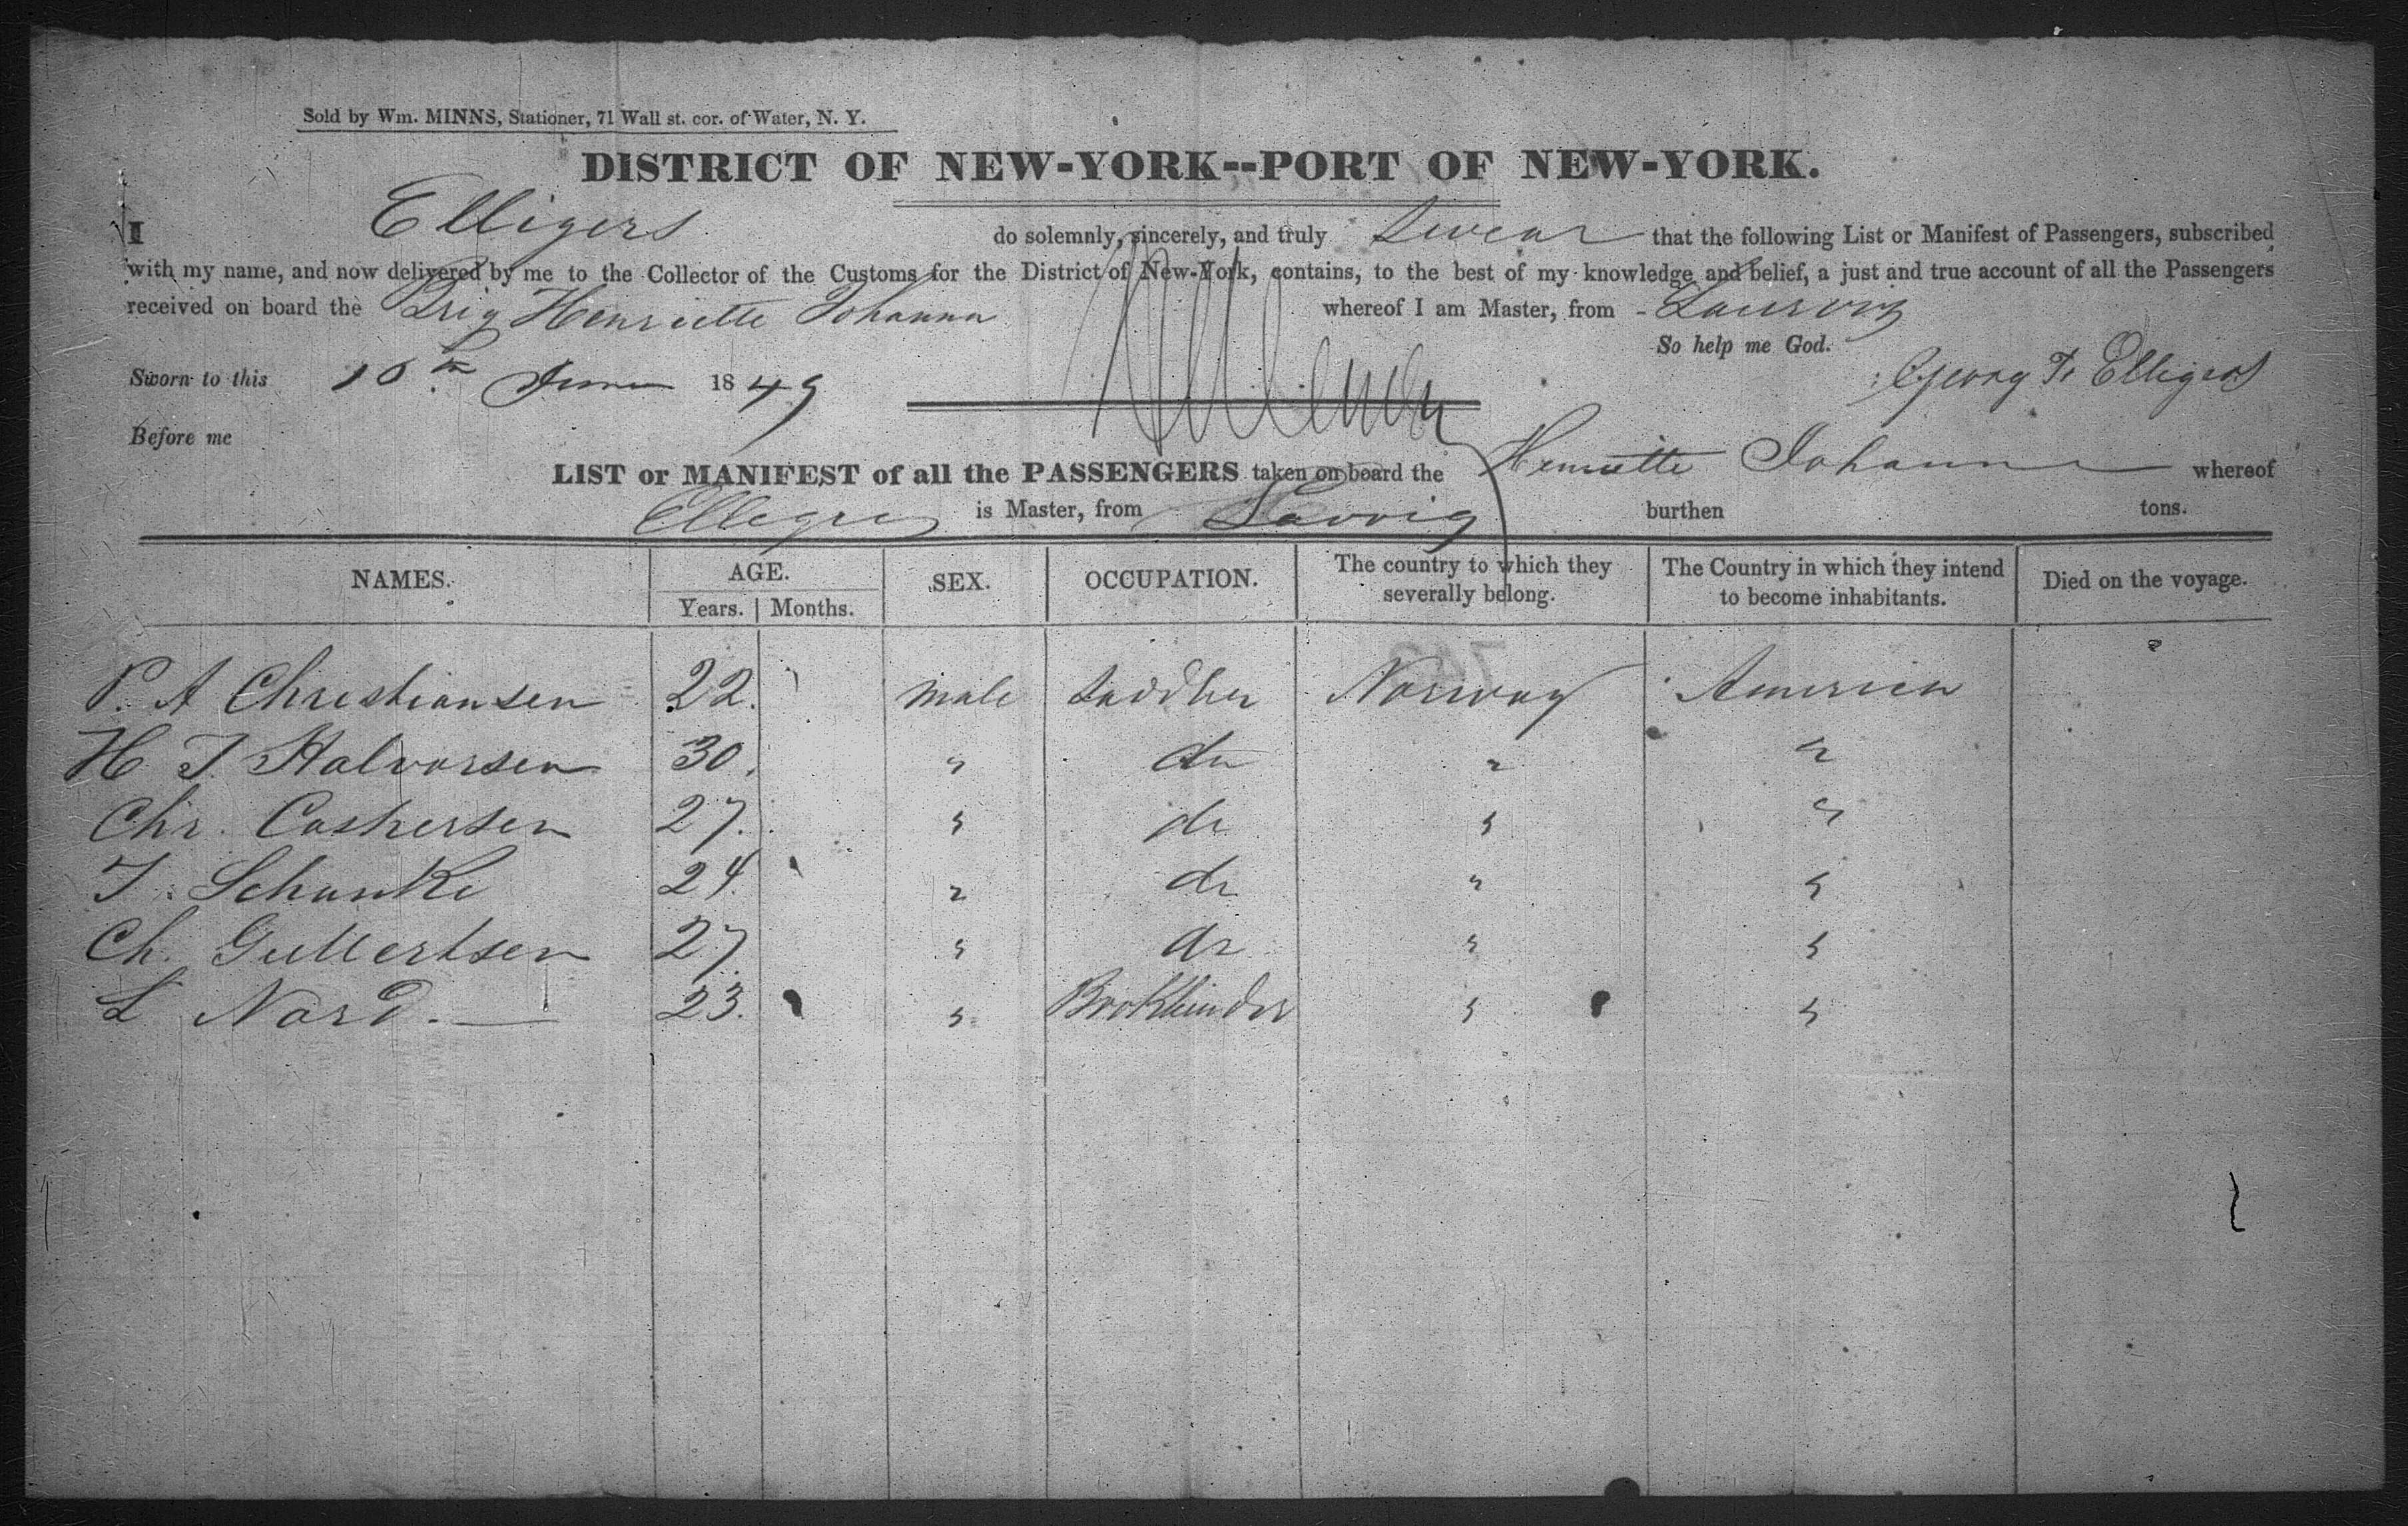 Sold by Wm. MINNS, Stationer, 71 Wall st. cor. of Water, N. Y.
DISTRICT OF NEW-YORK--PORT OF NEW-YORK.
I Elligers do solemnly, sincerely, and truly swear that the following List or Manifest of Passengers, subscribed
with my name, and now delivered by me to the Collector of the Customs for the District of New-York, contains, to the best of my knowledge and belief, a just and true account of all the Passengers
received on board the Brig Henriette Johanna whereof I am Master, from
So help me God.
Sworn to this 16th June 1849 Georg F. Elligers
Before me
LIST or MANIFEST of all the PASSENGERS taken on board the Henriette Johanna whereof
is Master, from Larvig burthen tons.
NAMES. AGE. SEX. OCCUPATION. The country to which they severally belong. The Country in which they intend to become inhabitants. Died on the voyage.
Years. Months.
P. A Christiansen 22. male Saddler Norway America
H. J. Halvorsen 30. " do " "
Chr. Caspersen 27. " do " "
J. Schanke 24. " do " "
Ch. Gullertsen 27 " do " "
L Nord. — 23. " Bookbinder " "